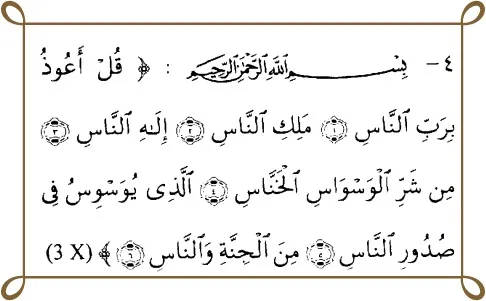 ٤- بِسْمِ ٱللَّهِ ٱلرَّحْمَٰنِ ٱلرَّحِيمِ : ﴿ قُلْ أَعُوذُ
بِرَبِّ ٱلنَّاسِ ۝١ مَلِكِ ٱلنَّاسِ ۝٢ إِلَٰهِ ٱلنَّاسِ ۝٣
مِن شَرِّ ٱلْوَسْوَاسِ ٱلْخَنَّاسِ ۝٤ ٱلَّذِى يُوَسْوِسُ فِى
صُدُورِ ٱلنَّاسِ ۝٤ مِنَ ٱلْجِنَّةِ وَٱلنَّاسِ ۝٦ ﴾ (3 X)